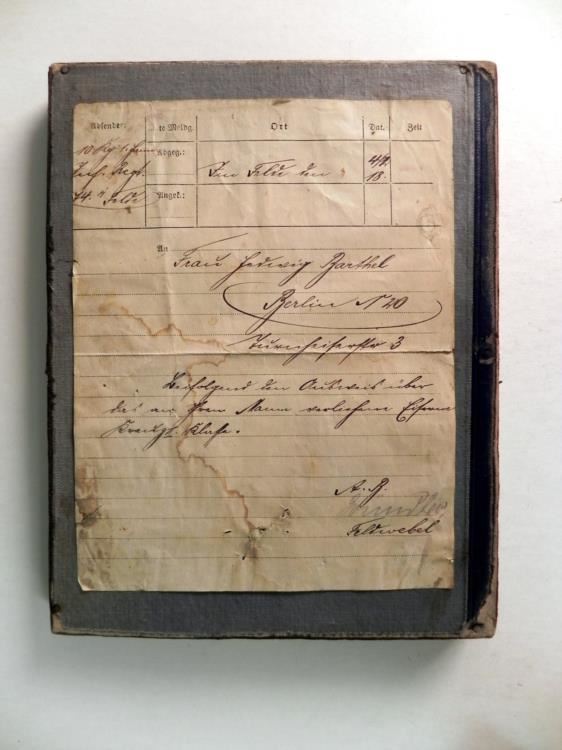 Absender: te Meldg. Ort Dat. Zeit
10. Kp.
Inf. Regt.
74. i. Felde
Abgeg.: Im Felde den 4/2. 18.
Angek.:
An Frau Hedwig Barthel
Berlin N 20
Turnheiserstr 3
Beifolgend den Ausweis über
das an Ihren Mann verliehene Eiserne
Kreuz Klasse.
A. B.
Feldwebel